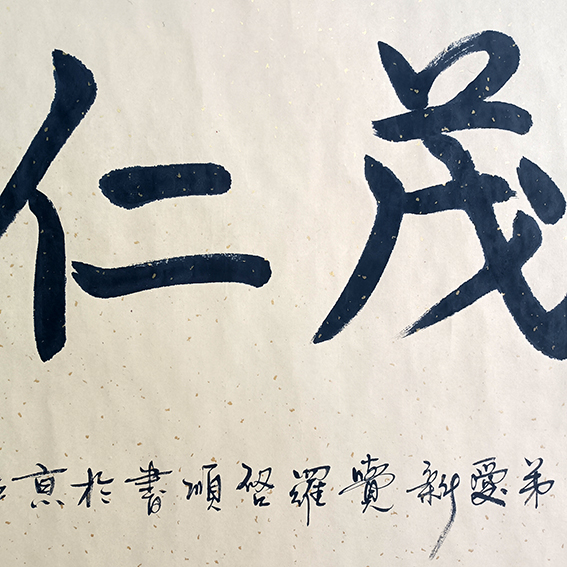 茂仁
弟愛新覺羅啓順書於京